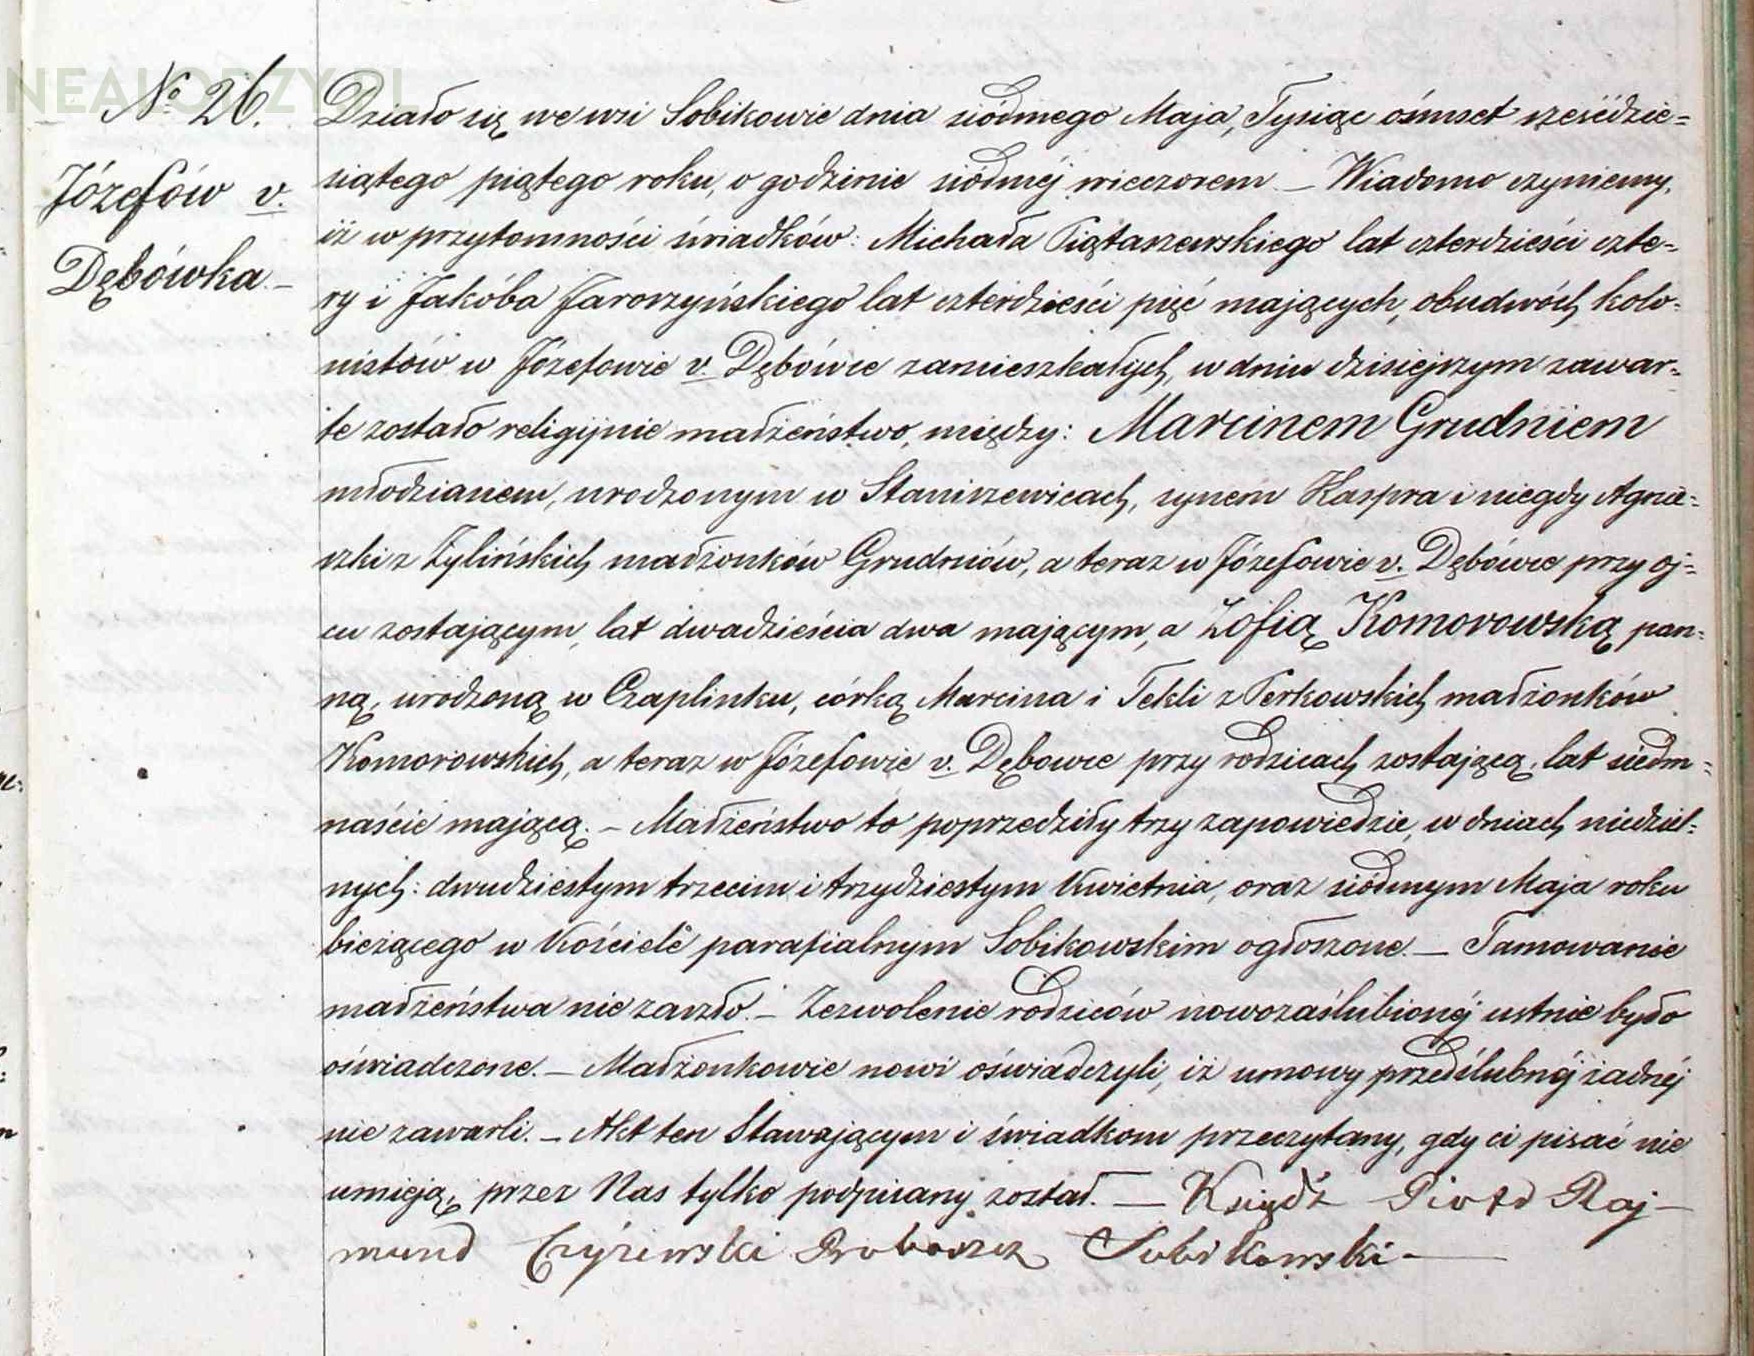 NEALODZY.PL
№ 26.
Józefów v.
Dębówka. –
Działo się we wsi Sobikowie dnia siódmego Maja, Tysiąc ośmset sześćdzie=
siątego piątego roku, o godzinie siódméj wieczorem. – Wiadomo czyniemy,
iż w przytomności świadków: Michała Piątaszewskiego lat czterdzieści czte=
ry i Jakóba Jaroszyńskiego lat czterdzieści pięć mających, obudwóch kolo=
nistów w Józefowie v. Dębówce zamieszkałych, w dniu dzisiejszym zawar=
te zostało religijnie małżeństwo, między: Marcinem Grudniem
młodzianem, urodzonym w Staniszewicach, synem Kaspra i niegdy Agnie=
szki z Żylińskich małżonków Grudniów, a teraz w Józefowie v. Dębówce przy oj=
cu zostającym, lat dwadzieścia dwa mającym, a Zofią Komorowską pan=
ną, urodzoną w Czaplinku, córką Marcina i Tekli z Perkowskich małżonków
Komorowskich, a teraz w Józefowie v. Dębowce przy rodzicach zostającą, lat siedm=
naście mającą. – Małżeństwo to poprzedziły trzy zapowiedzie, w dniach niedziel=
nych: dwudziestym trzecim i trzydziestym Kwietnia, oraz siódmym Maja roku
bieżącego w Kościele parafialnym Sobikowskim ogłoszone. – Tamowanie
małżeństwa nie zaszło. – Zezwolenie rodziców nowozaślubionéj ustnie było
oświadczone. – Małżonkowie nowi oświadczyli, iż umowy przedślubnéj żadnéj
nie zawarli. – Akt ten Stawającym i świadkom przeczytany, gdy ci pisać nie
umieją, przez Nas tylko podpisany został. – Ksiądz Piotr Raj–
mund Czyżewski Proboszcz Sobikowski –